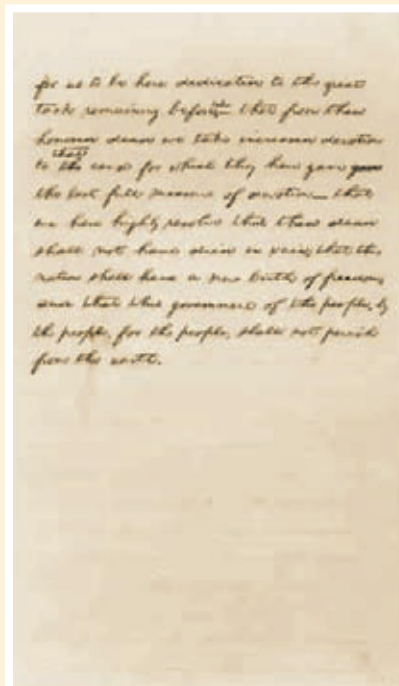 for us to be here dedicated to the great
task remaining before us— that from these
honored dead we take increased devotion
that
to the cause for which they here gave gave
the last full measure of devotion— that
we here highly resolve that these dead
shall not have died in vain; that this
nation shall have a new birth of freedom;
and that this government of the people, by
the people, for the people, shall not perish
from the earth.